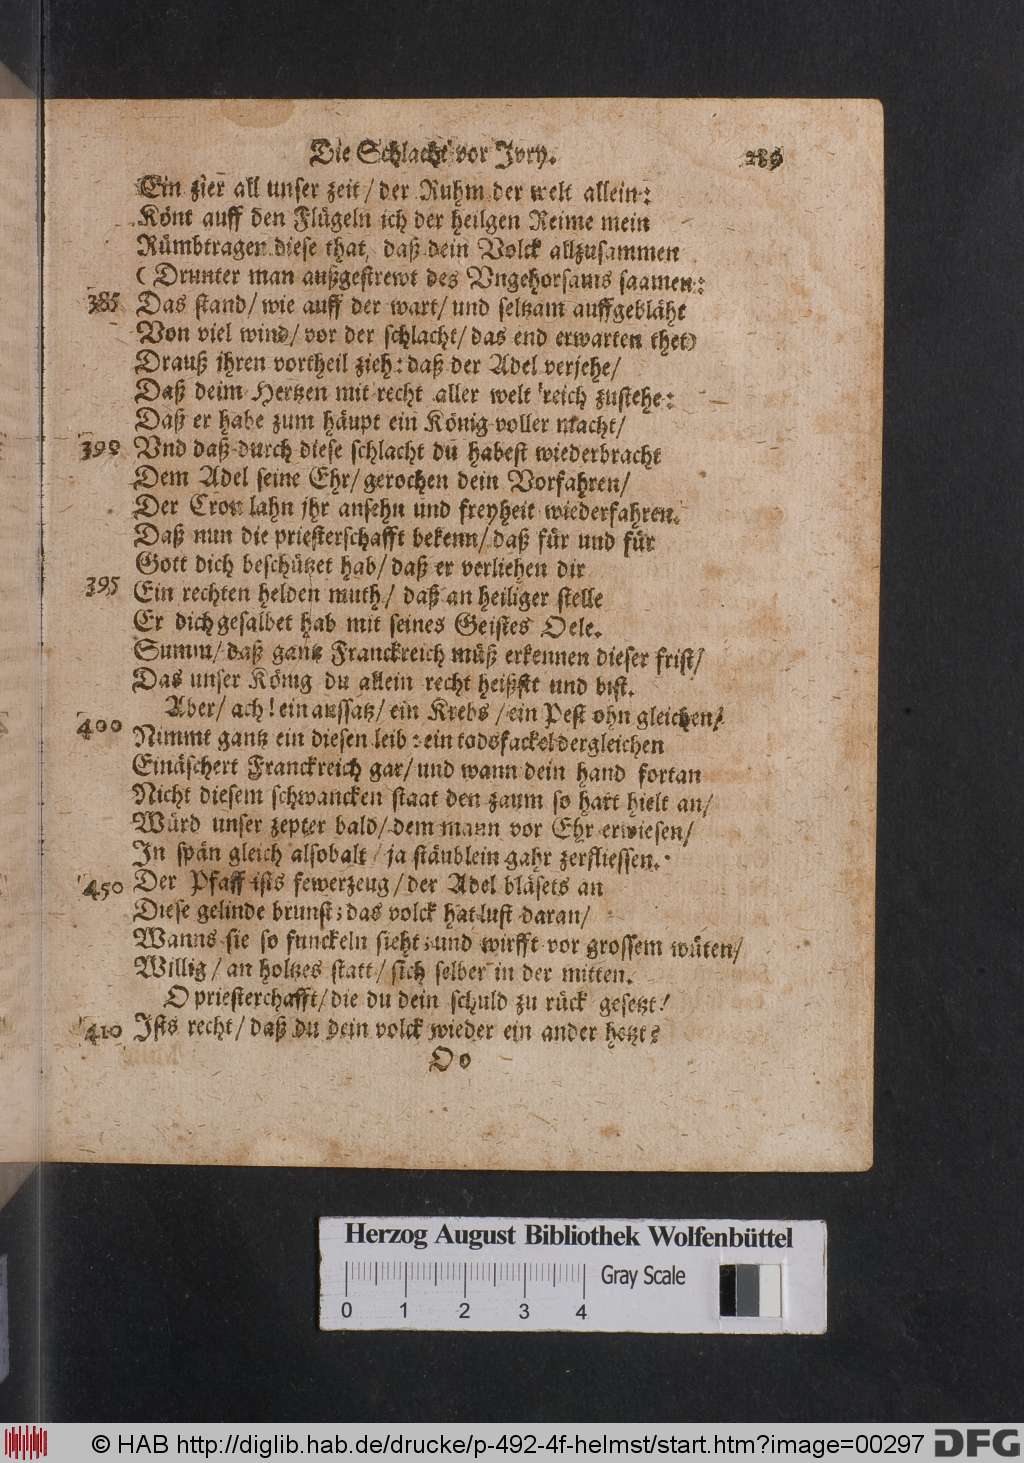 Die Schlacht vor Jvry. 289
Ein zier all unser zeit/ der Ruhm der welt allein:
Könt auff den Flügeln ich der heilgen Reime mein
Rümbtragen diese that, daß dein Volck allzusammen
( Drunter man außgestrewt des Vngehorsams saamen:
385 Das stand/ wie auff der wart/ und seltzam auffgebläht
Von viel wind/ vor der schlacht/ das end erwarten thet)
Drauß ihren vortheil zieh: daß der Adel verjehe/
Daß deim Hertzen mit recht aller welt reich zustehe:
Daß er habe zum häupt ein König voller macht/
390 Vnd daß durch diese schlacht du habest wiederbracht
Dem Adel seine Ehr/ gerochen dein Vorfahren/
Der Cron lahn jhr ansehn und freyheit wiederfahren.
Daß nun die priesterschafft bekenn/ daß für und für
Gott dich beschützet hab/ daß er verliehen dir
395 Ein rechten helden muth/ daß an heiliger stelle
Er dich gesalbet hab mit seines Geistes Oele.
Summ/ daß gantz Franckreich müß erkennen dieser frist/
Das unser König du allein recht heißst und bist.
Aber/ ach! ein aussatz/ ein Krebs/ ein Pest ohn gleichen/
400 Nimmt gantz ein diesen leib: ein todsfackel dergleichen
Einäschert Franckreich gar/ und wann dein hand fortan
Nicht diesem schwancken staat den zaum so hart hielt an/
Würd unser zepter bald/ dem mann vor Ehr erwiesen/
In spän gleich alsobalt/ ja stäublein gahr zerfliessen.
450 Der Pfaff ists fewerzeug/ der Adel bläsets an
Diese gelinde brunst; das volck hat lust daran/
Wanns sie so funckeln sieht; und wirfft vor grossem wüten/
Willig/ an holtzes statt/ sich selber in der mitten.
O priesterchafft/ die du dein schuld zu rück gesetzt!
410 Ists recht/ daß du dein volck wieder ein ander hetzt?
Oo
Herzog August Bibliothek Wolfenbüttel
Gray Scale
0 1 2 3 4
© HAB http://diglib.hab.de/drucke/p-492-4f-helmst/start.htm?image=00297 DFG